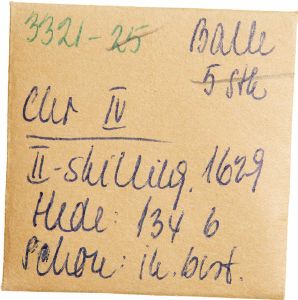 3321-25 Balle
5 stk
Chr IV
II-skilling. 1629
Hede: 134 6
Schou: ik. best.